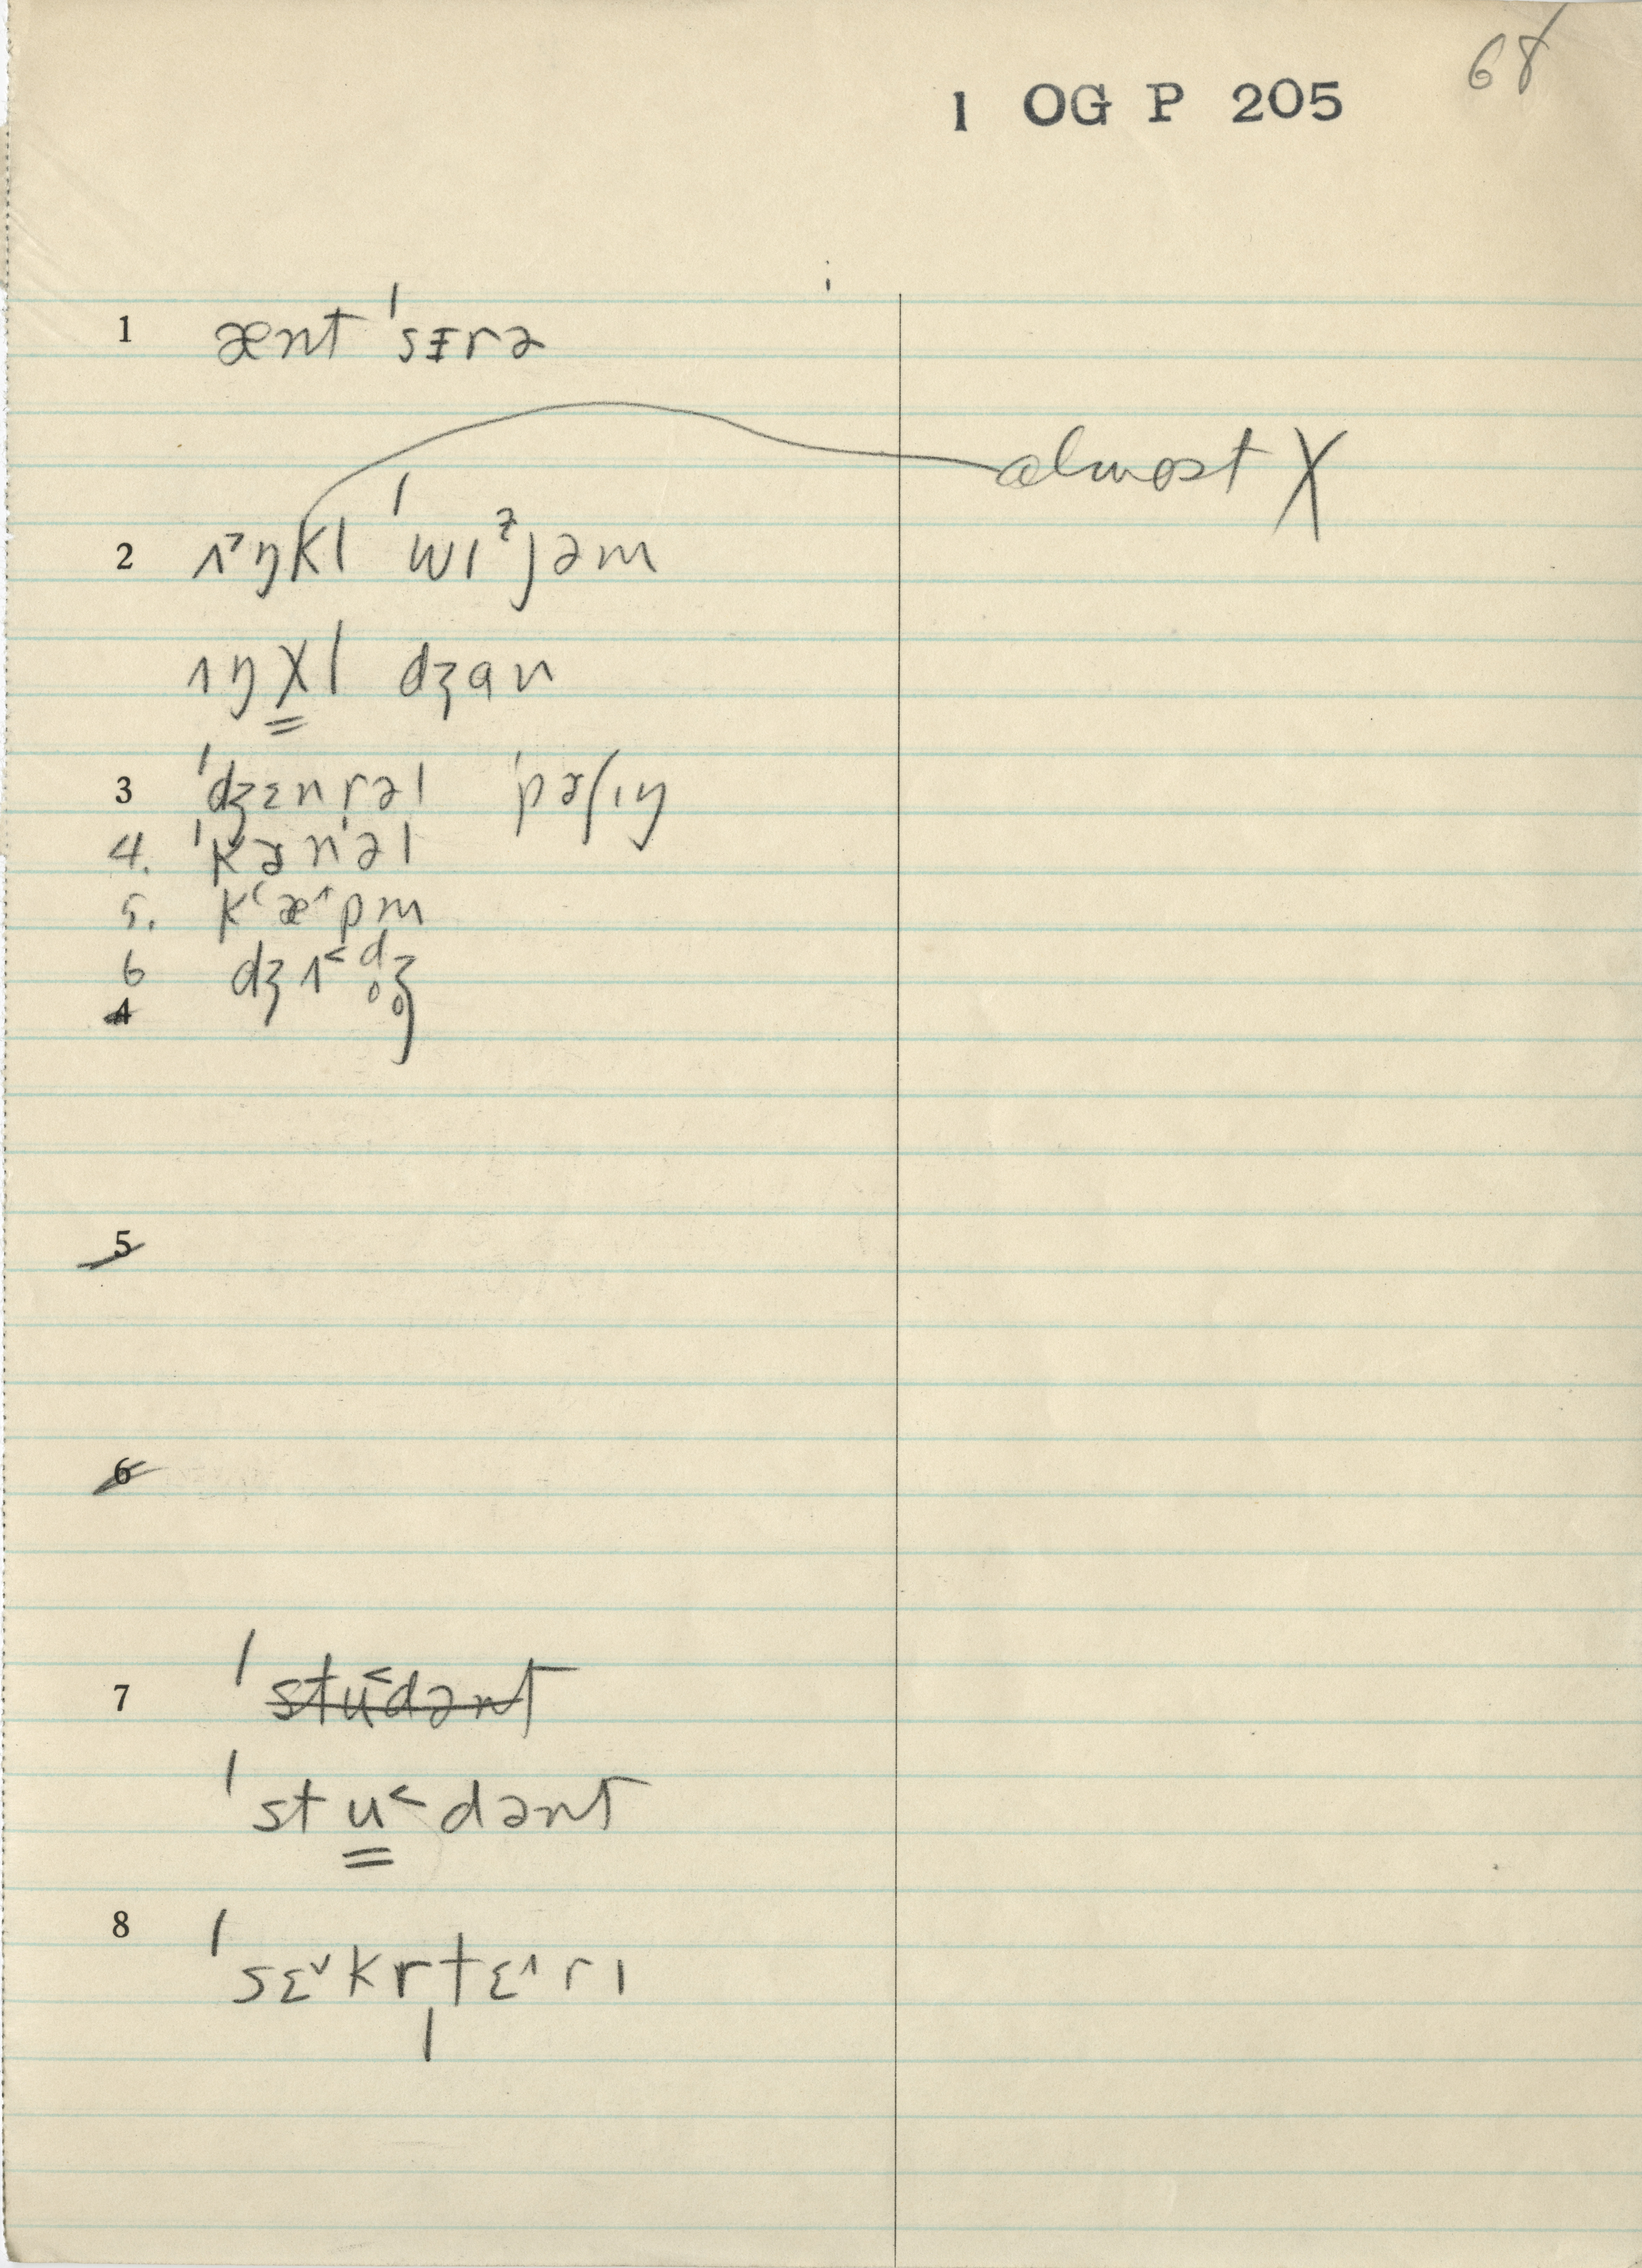 68
1 OG P 205
1 ænt ˈsɪrə
almost χ
2 ɪ˃ŋkl ˈwɪᶻjəm
ɪŋχl dʒɑn
3 ˈdʒɛnrəl ˈpɚʃɪŋ
4. ˈkɚnəl
5. kʻæ˄pm
6 dʒɪ˂d̥ʒ̥
4
5
6
7 ˈstu˂dənt
ˈstu˂dənt
8 ˈsɛ˅krˌtɛ˄rɪ